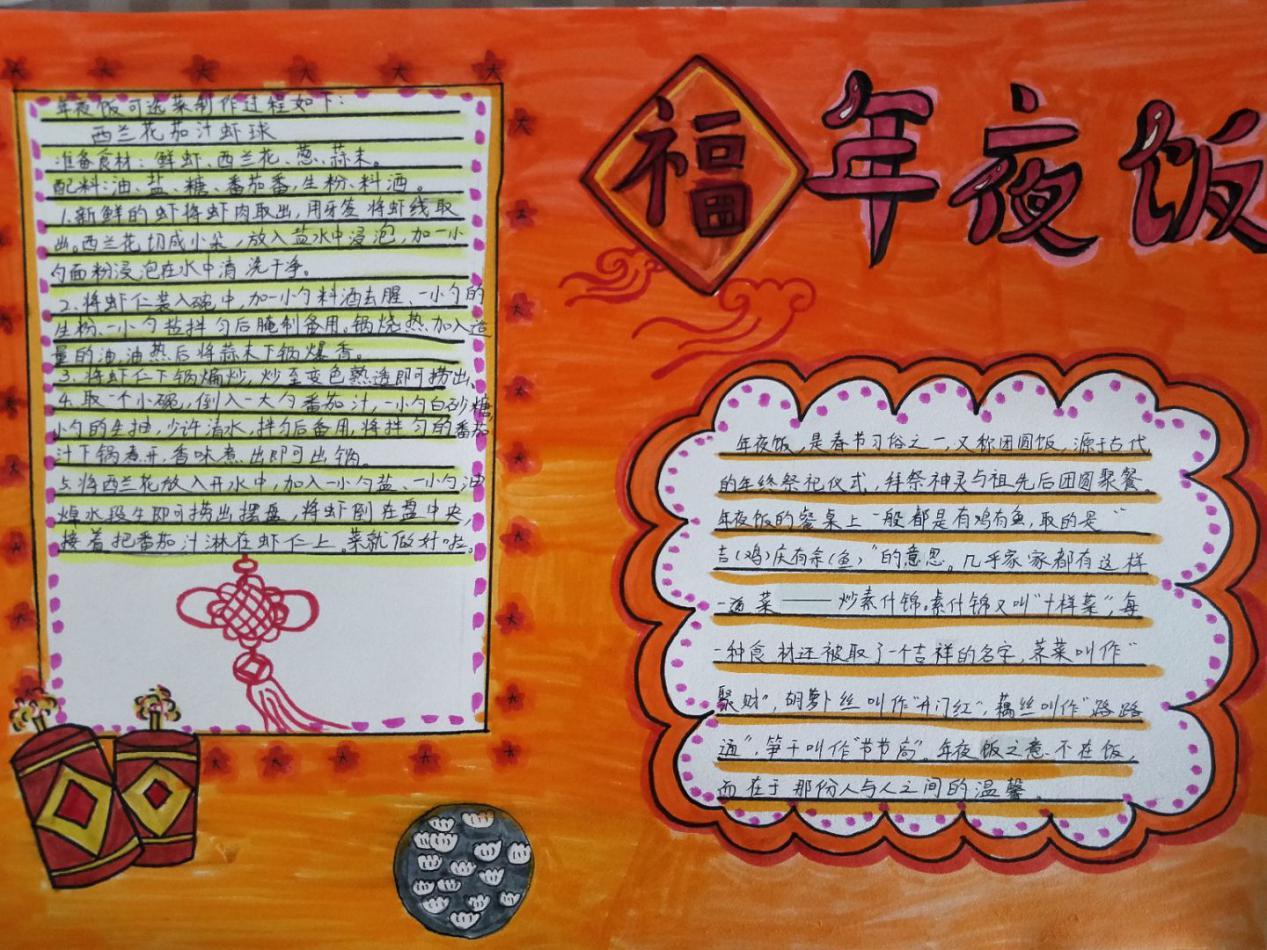 年夜饭可选菜制作过程如下：
西兰花茄汁虾球
准备食材：鲜虾、西兰花、葱、蒜末。
配料：油、盐、糖、番茄番，生粉、料酒。
1.新鲜的虾将虾肉取出，用牙签将虾线取
出。西兰花切成小朵，放入盐水中浸泡，加一小
勺面粉浸泡在水中清洗干净。
2.将虾仁装入碗中，加一小勺料酒去腥、一小勺的
生粉、一小勺盐拌匀后腌制备用。锅烧热加入适
量的油，油热后将蒜末下锅爆香。
3.将虾仁下锅煸炒，炒至变色熟透即可捞出。
4.取一个小碗，倒入一大勺番茄汁，一小勺白砂糖，
小勺的生抽，少许清水，拌匀后备用，将拌匀的番茄
汁下锅煮开，香味煮出即可出锅。
5.将西兰花放入开水中，加入一小勺盐、一小勺油
焯水段生即可捞出摆盘，将虾倒在盘中央，
接着把番茄汁淋在虾仁上。菜就做好啦。
福
年夜饭
年夜饭，是春节习俗之一，又称团圆饭，源于古代
的年终祭祀仪式，拜祭神灵与祖先后团圆聚餐。
年夜饭的餐桌上一般都是有鸡有鱼，取的是“
吉(鸡)庆有余(鱼)”的意思。几乎家家都有这样
一道菜——炒素什锦。素什锦又叫“十样菜”，每
一种食材还被取了一个吉祥的名字，荠菜叫作“
聚财”，胡萝卜丝叫作“开门红”，藕丝叫作“路路
通”，笋干叫作“节节高”。年夜饭之意不在饭，
而在于那份人与人之间的温馨。